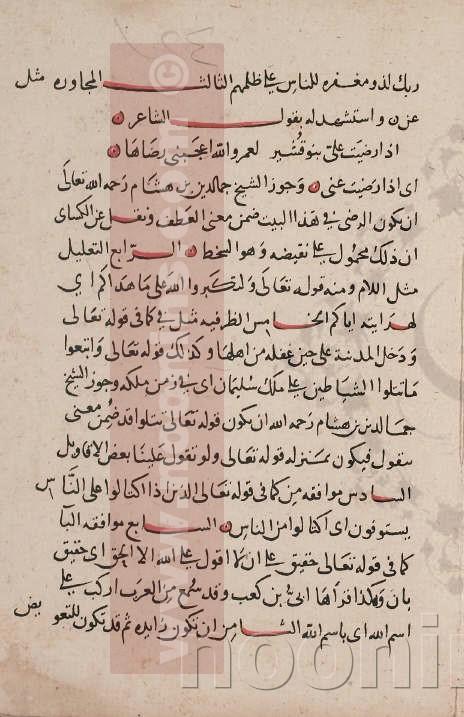 ربك لذو مغفره للناس على ظلمهم الثالث المجاوره مثل
عن واستشهد له بقول الشاعر
اذا رضيت على بنو قشير لعمر والله اعجبني رضاها
اي اذا رضيت عني وجوز الشيخ جمال الدين بن هشام رحمه الله تعالى
ان يكون الرضى في هذا البيت ضمن معنى العطف ونقل عن الكساى
ان ذلك محمول على نقيضه وهو السخط الرابع التعليل
مثل اللام ومنه قوله تعالى ولتكبروا الله على ما هداكم اي
لهدايته اياكم الخامس الظرفيه مثل في كما في قوله تعالى
ودخل المدينة على حين غفله من اهلها وكذلك قوله تعالى واتبعوا
ما تتلوا الشياطين على ملك سليمان اى في زمن ملكه وجوز الشيخ
جمال الدين بن هشام رحمه الله ان يكون قوله تعالى تتلوا قد ضمن معنى
تتقول فيكون بمنزله قوله تعالى ولو تقول علينا بعض الاقاويل
السادس موافقه من كما في قوله تعالى الذين اذا اكتالوا على الناس
يستوفون اى اكتالوا من الناس السابع موافقه البا
كما في قوله تعالى حقيق على ان لا اقول على الله الا الحق اى حقيق
بان وهكذا قراها ابي بن كعب وقد سمع من العرب اركب على
اسم الله اى باسم الله الثامن ان تكون زايده ثم قد تكون للتعو
يض
www.noonims.com ©
nooni